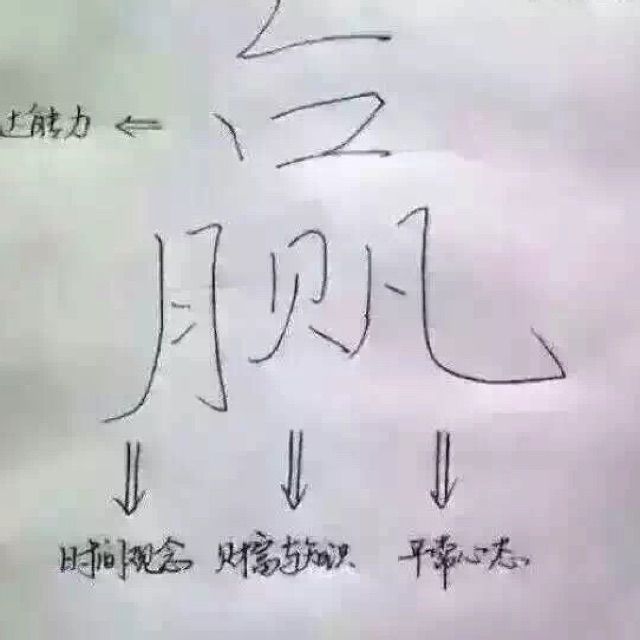 达能力
赢
时间观念 财富与知识 平常心态